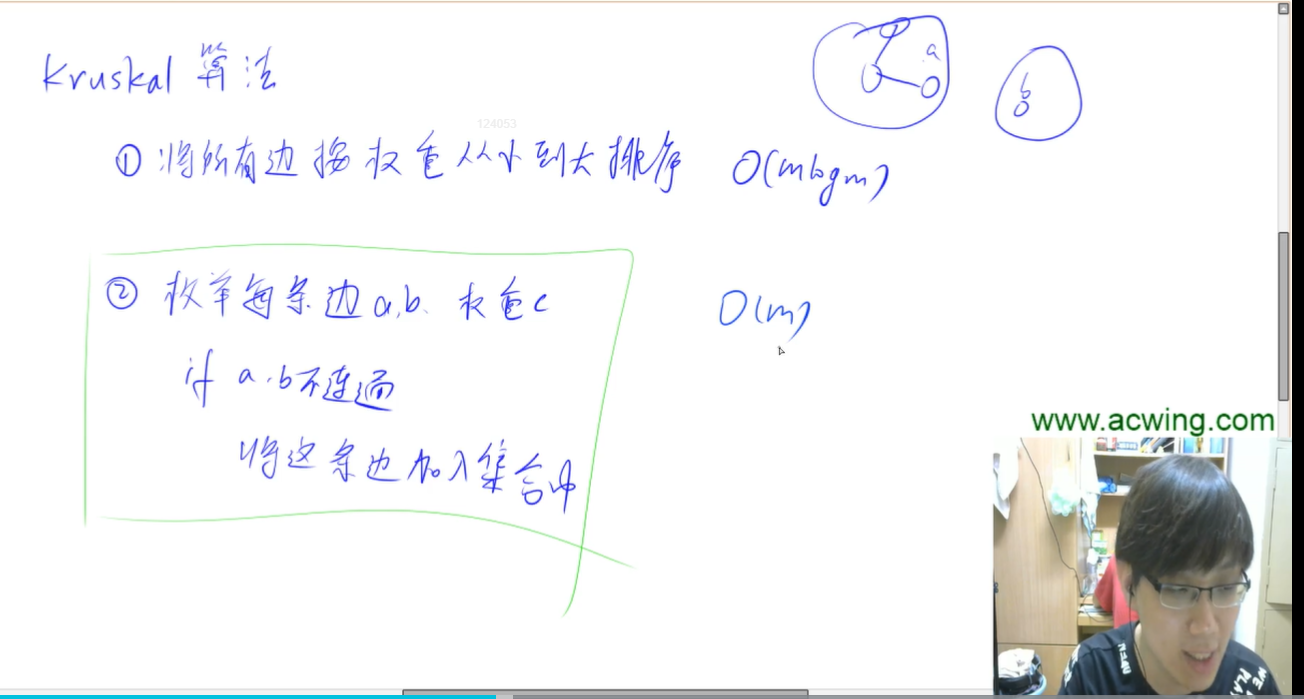 Kruskal 算法
a
b
124053
① 将所有边按权重从小到大排序 O(mlogm)
② 枚举每条边a,b、权重c O(m)
if a,b不连通
将这条边加入集合中
www.acwing.com